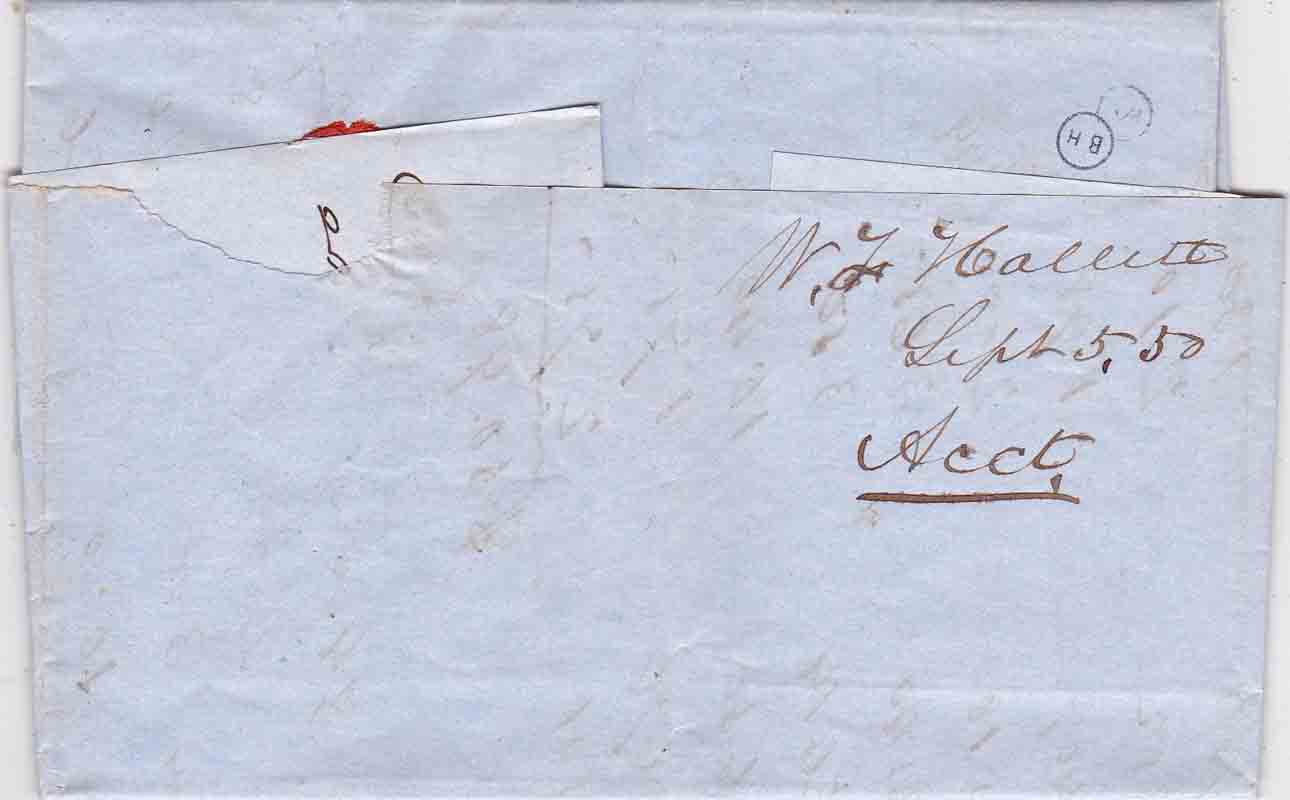 B H
W. F. Hallett
Sept 5, 50
Acct.